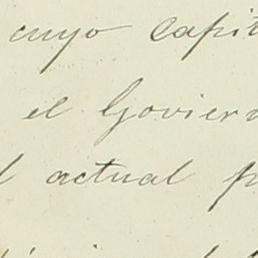 cuyo capit
el Goviern
l actual p